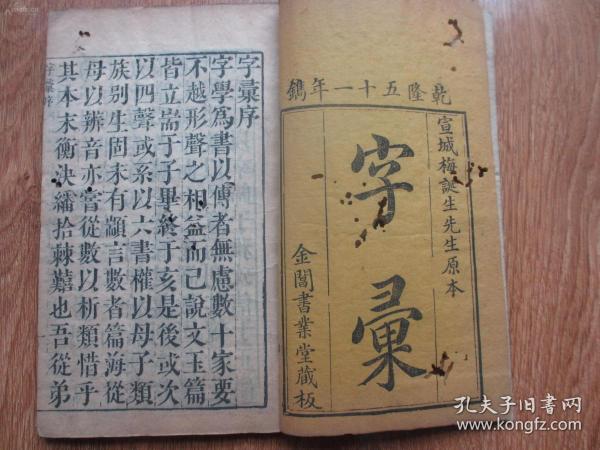 乾隆五十一年鐫
宣城梅誕生先生原本
字彙
金閶書業堂藏板
字彙序
字學為書以傳者無慮數十家要
不越形聲之相益而已說文玉篇
皆立耑于子畢終于亥是後或次
以四聲或系以六書權以母子類
族别生固未有顓言數者篇海從
母以辨音亦嘗從數以析類惜乎
其本末衡決繻拾棘囏也吾從弟
字彙序
孔夫子旧书网
www.kongfz.com